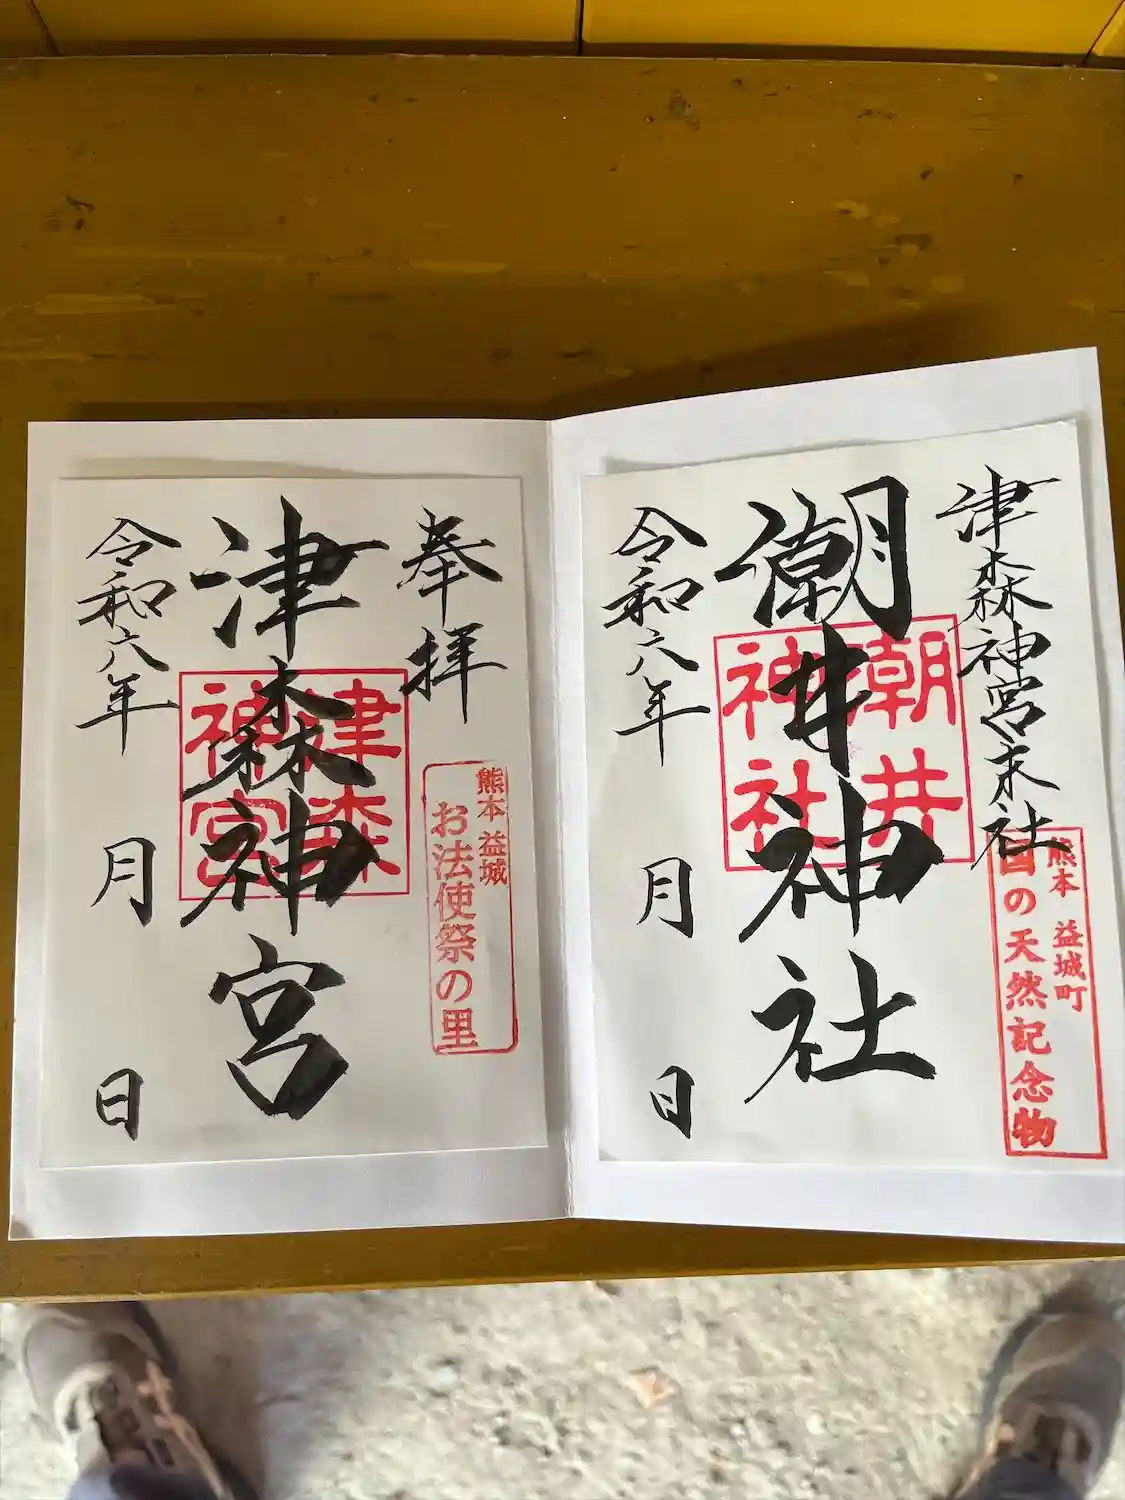 津森神宮末社
潮井神社
令和六年
月
日
潮井
神社
熊本 益城町
国の天然記念物
奉拝
津森神宮
令和六年
月
日
津森
神宮
熊本 益城
お法使祭の里